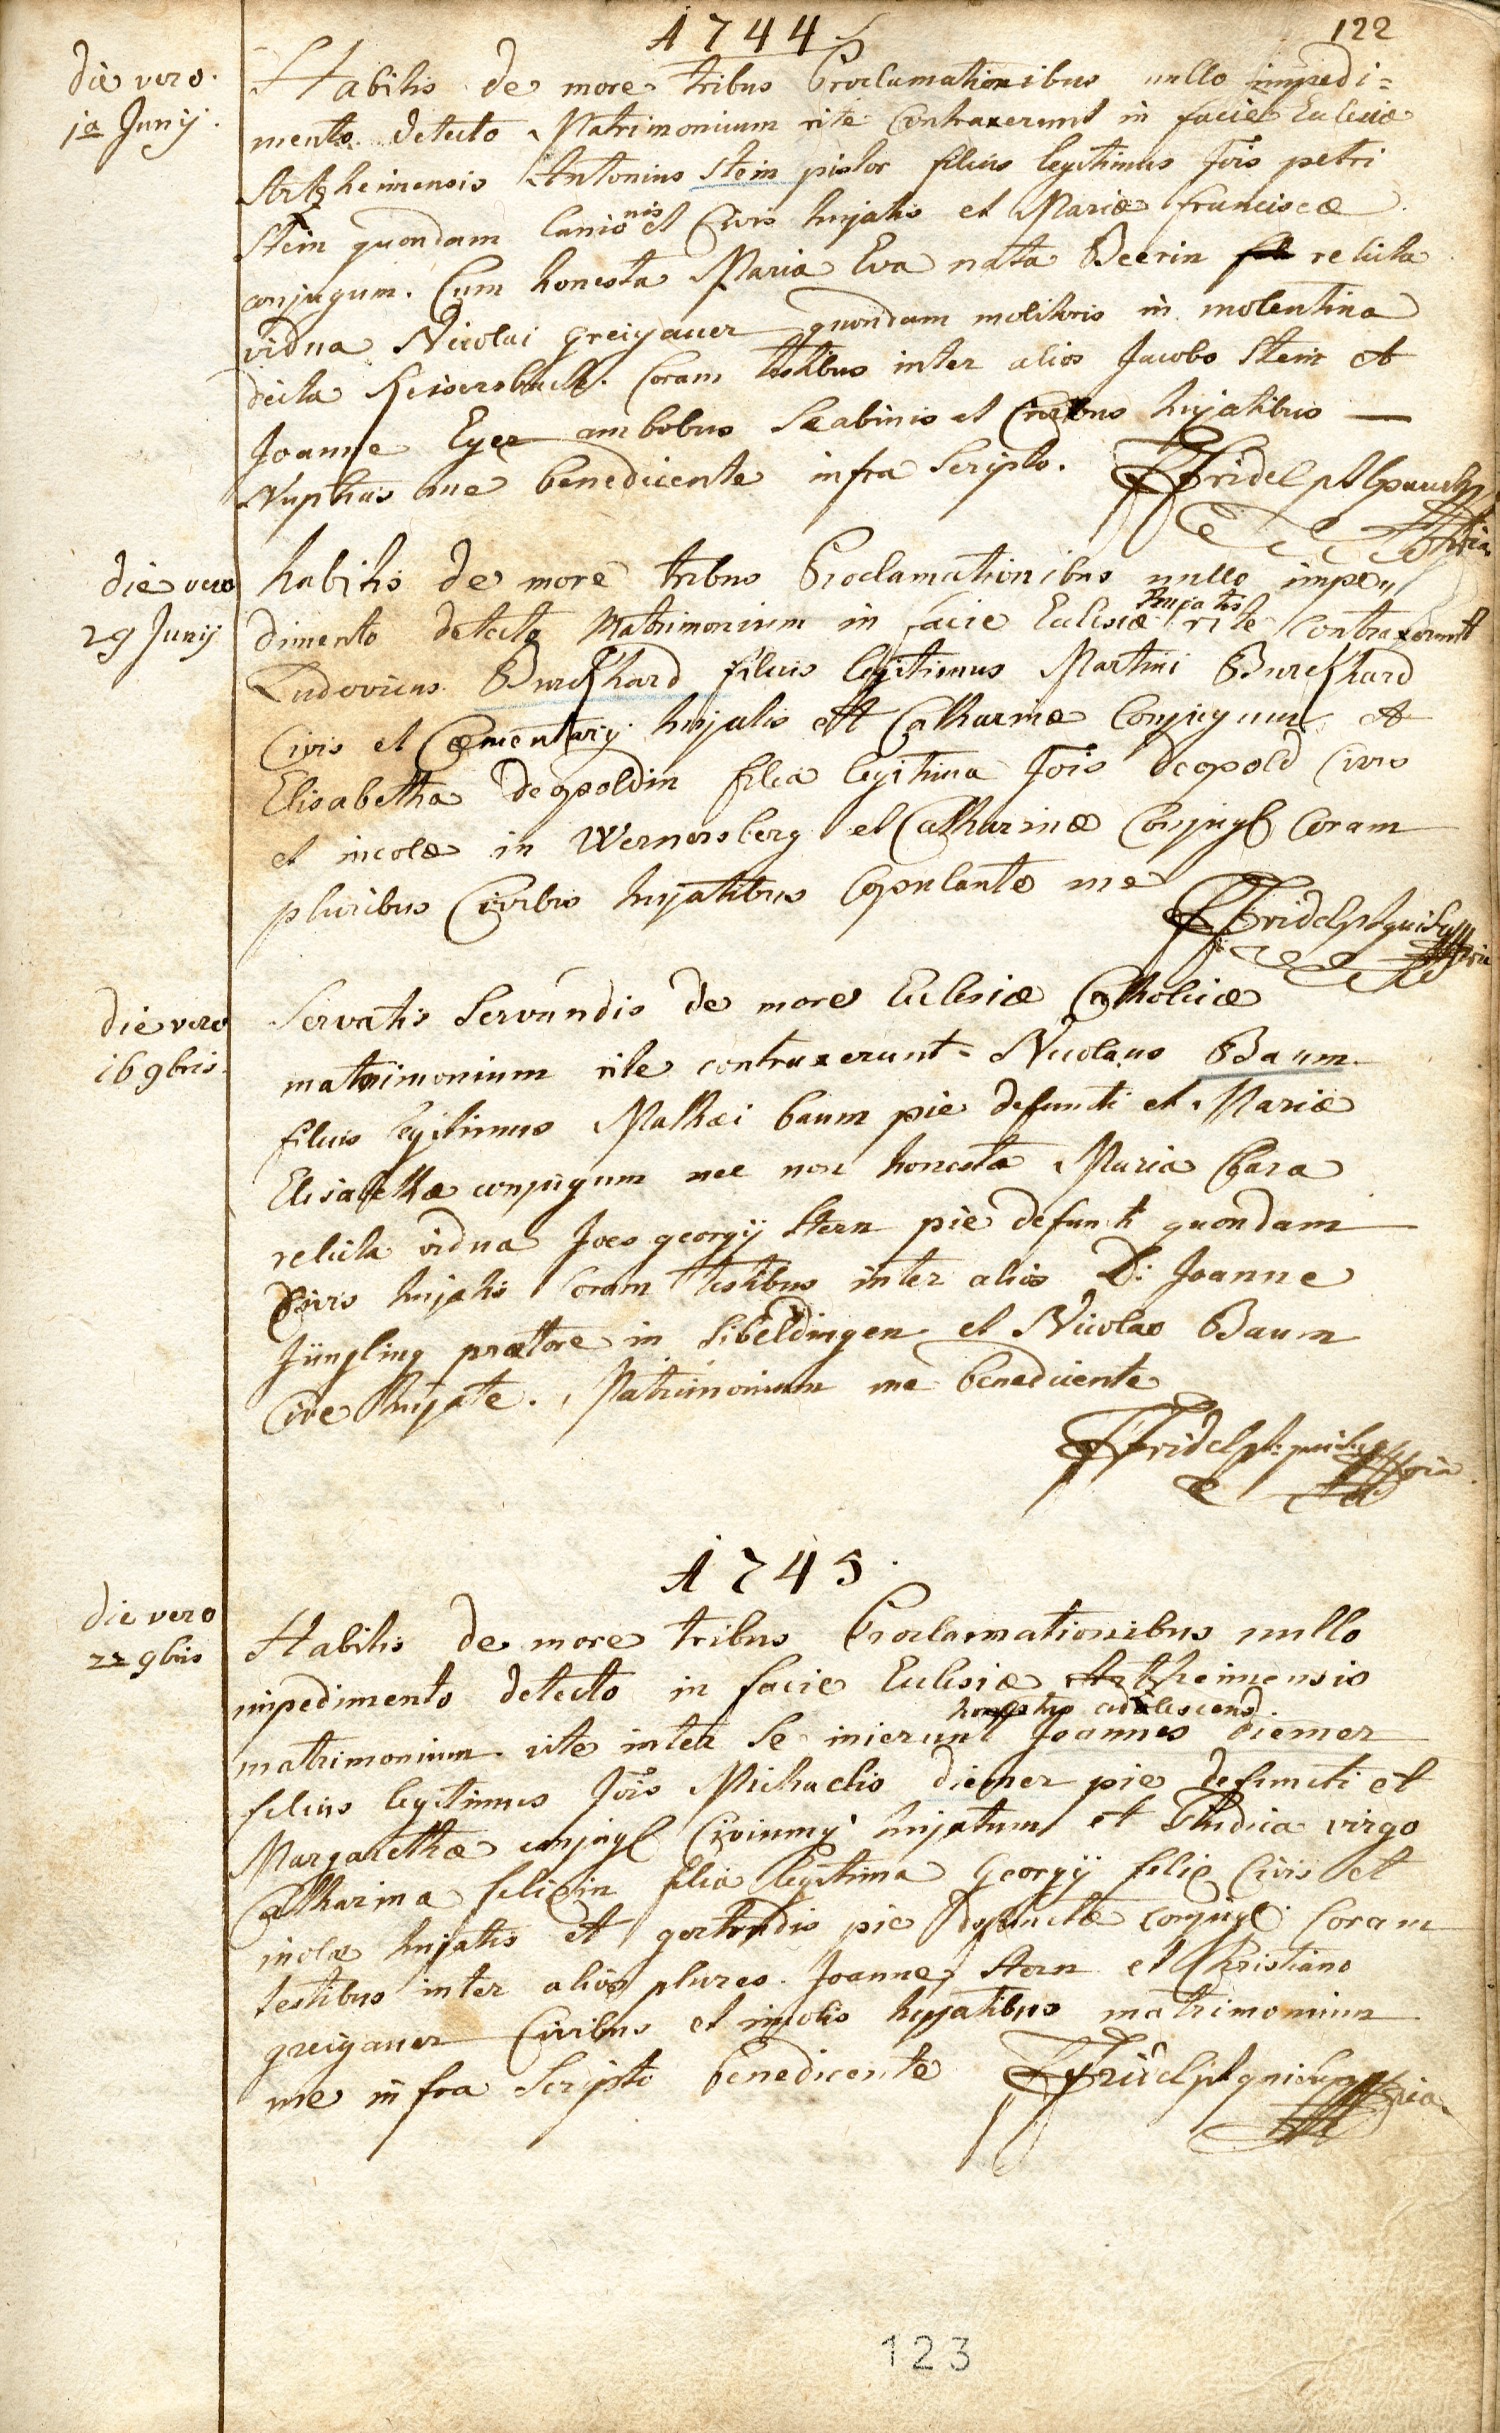 1744
122
die vero
1a Junij.
Habitis de more tribus Proclamationibus nullo impedi=
mento detecto Matrimonium rite Contraxerunt in facie Eclesiæ
Artzheimensis Antonius Stein pistor filius legitimus Jois petri
Stein quondam lanionis et Civis hujatis et Mariæ franciscæ
conjugum. Cum honesta Maria Eva nata Beerin relicta
vidua Nicolai greigauer quondam molitoris in molentina
dicta Keisersbach. Coram testibus inter alios Jacobo Stein et
Joanne Eyer ambobus Scabinis et Civibus hujatibus —
Nuptias me benedicente infra Scripto. Fridel
die vero
29 Junij
habitis de more tribus Proclamationibus nullo impe„
dimento detecto Matrimonium in facie Eclesiæ hujatis rite Contraxerunt
Ludovicus Burckhard filius legitimus Martini Burckhard
Civis et Cæmentarij hujatis et Catharinæ Conjugum et
Elisabetha Deopoldin filia legitima Jois Deopold Civis
et incolæ in Wernersberg et Catharinæ Conjug Coram
pluribus Civibus hujatibus Copulante me
Fridel
die vero
16 9bris.
Servatis Servandis de more Eclesiæ Catholicæ
matrimonium rite contraxerunt Nicolaus Baum
filius legitimus Mathæi baum pie defuncti et Mariæ
Elisabethæ conjugum nec non honesta Maria Clara
relicta vidua Joes georgij Stern pie defuncti quondam
Civis hujatis Coram testibus inter alios D: Joanne
Jüngling prætore in Sibeldingen et Nicolao Baum
Cive hujate. Matrimonium me benedicente
Fridel
1745.
die vero
22 9bris
Habitis de more tribus Proclamationibus nullo
impedimento detecto in facie Eclesiæ Artzheimensis
honestus adolescens
matrimonium rite inter Se inierunt Joannes diemer
filius legitimus Jois Michaelis diemer pie defuncti et
Margarethæ conjug Civium hujatum et Pudica virgo
Catharina felixin filia legitima Georgij felix Civis et
incolæ hujatis et gertrudis pie defunctæ conjug. Coram
testibus inter alios plures. Joanne Stern et Christiano
greigauer Civibus et incolis hujatibus matrimonium
me infra Scripto benedicente Fridel
123